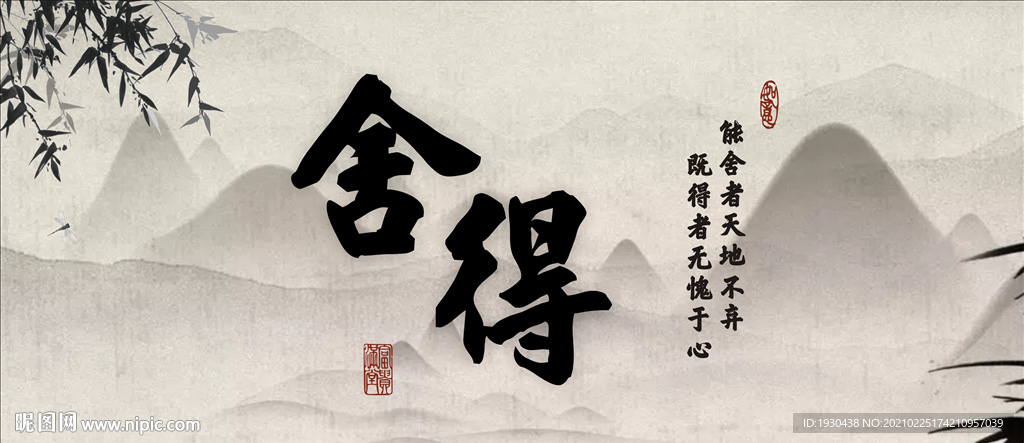 舍得
如意
能舍者天地不弃
既得者无愧于心
富贵满堂
昵图网 www.nipic.com
ID:1930438 NO:20210225174210957039